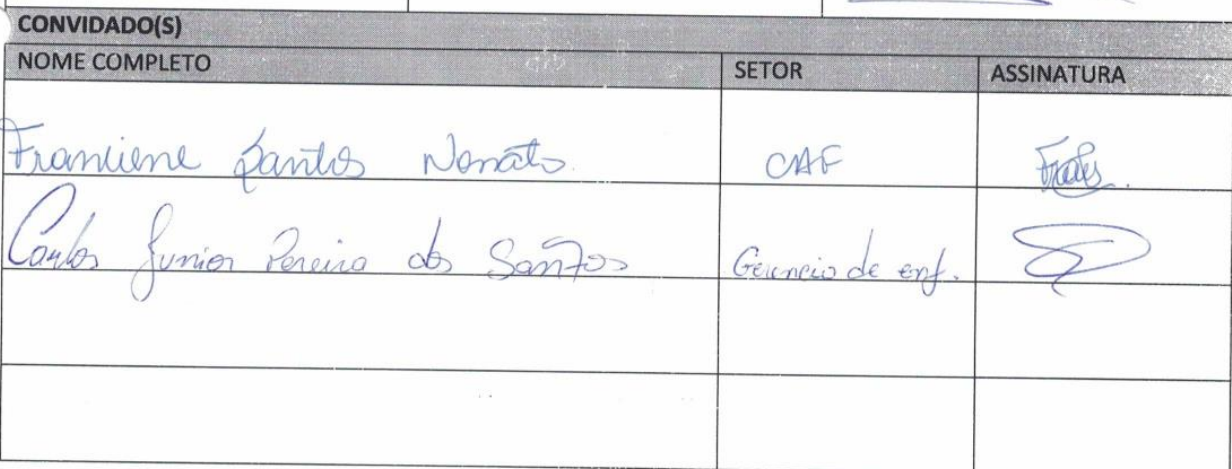 CONVIDADO(S)
NOME COMPLETO SETOR ASSINATURA
Franciene Santos Nonato. CAF
Carlos Junior Pereira dos Santos Gerencia de enf.